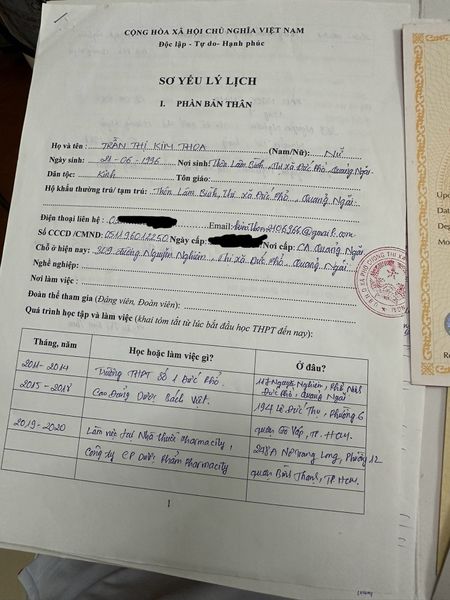 CỘNG HÒA XÃ HỘI CHỦ NGHĨA VIỆT NAM
Độc lập - Tự do- Hạnh phúc
SƠ YẾU LÝ LỊCH
I. PHẦN BẢN THÂN
Họ và tên: TRẦN THỊ KIM THOA (Nam/Nữ): Nữ
Ngày sinh: 24-06-1996 Nơi sinh: Thôn Lâm Bình, Thị xã Đức Phổ, Quảng Ngãi
Dân tộc: Kinh Tôn giáo:
Hộ khẩu thường trú/ tạm trú: Thôn Lâm Bình, Thị xã Đức Phổ, Quảng Ngãi
Điện thoại liên hệ: Email: 2406966@gmail.com
Số CCCD /CMND: 051196012250 Ngày cấp: Nơi cấp: CA Quảng Ngãi
Chỗ ở hiện nay: 349 đường Nguyễn Nghiêm, Thị xã Đức Phổ, Quảng Ngãi
Nghề nghiệp:
Nơi làm việc:
Đoàn thể tham gia (Đảng viên, Đoàn viên):
Quá trình học tập và làm việc (khai tóm tắt từ lúc bắt đầu học THPT đến nay):
Tháng, năm Học hoặc làm việc gì? Ở đâu?
2011-2014 Trường THPT Số 1 Đức Phổ. 117 Nguyễn Nghiêm, Phổ Ninh
Đức Phổ, Quảng Ngãi
2015-2018 Cao Đẳng Dược Sách Việt. 194 Lê Đức Thọ, Phường 6
quận Gò Vấp, TP. HCM.
2019-2020 Làm việc tại Nhà thuốc Pharmacity, 248A Nơ Trang Long, Phường 12
Công ty CP Dược Phẩm Pharmacity quận Bình Thạnh, TP HCM.
1